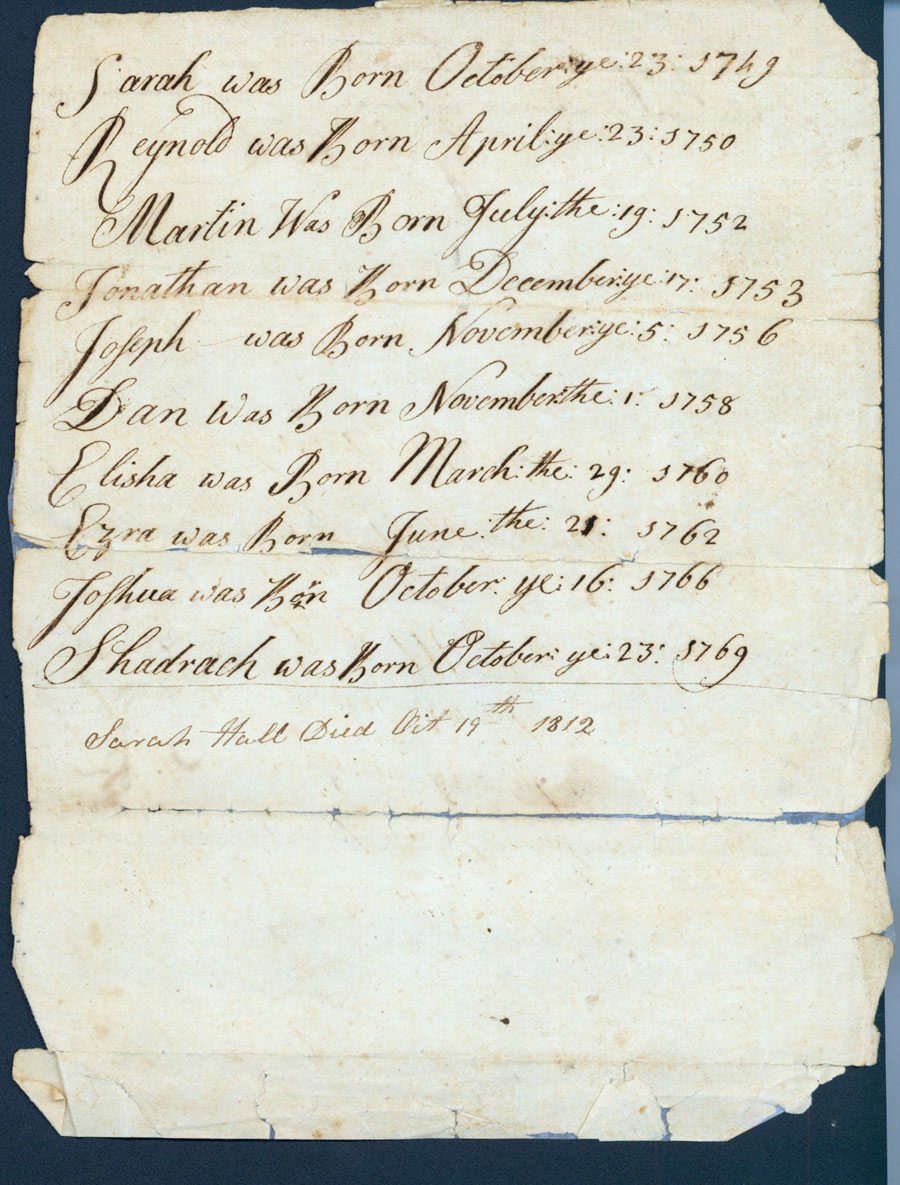 Sarah was Born October: ye: 23: 1749
Reynold was Born April: ye: 23: 1750
Martin Was Born July: the: 19: 1752
Jonathan was Born December: ye: 17: 1753
Joseph was Born November: ye: 5: 1756
Dan was Born November: the: 1: 1758
Elisha was Born March: the: 29: 1760
Ezra was Born June: the: 21: 1762
Joshua was Born October: ye: 16: 1766
Shadrach was Born October: ye: 23: 1769
Sarah Hall Died Oct 19th 1812